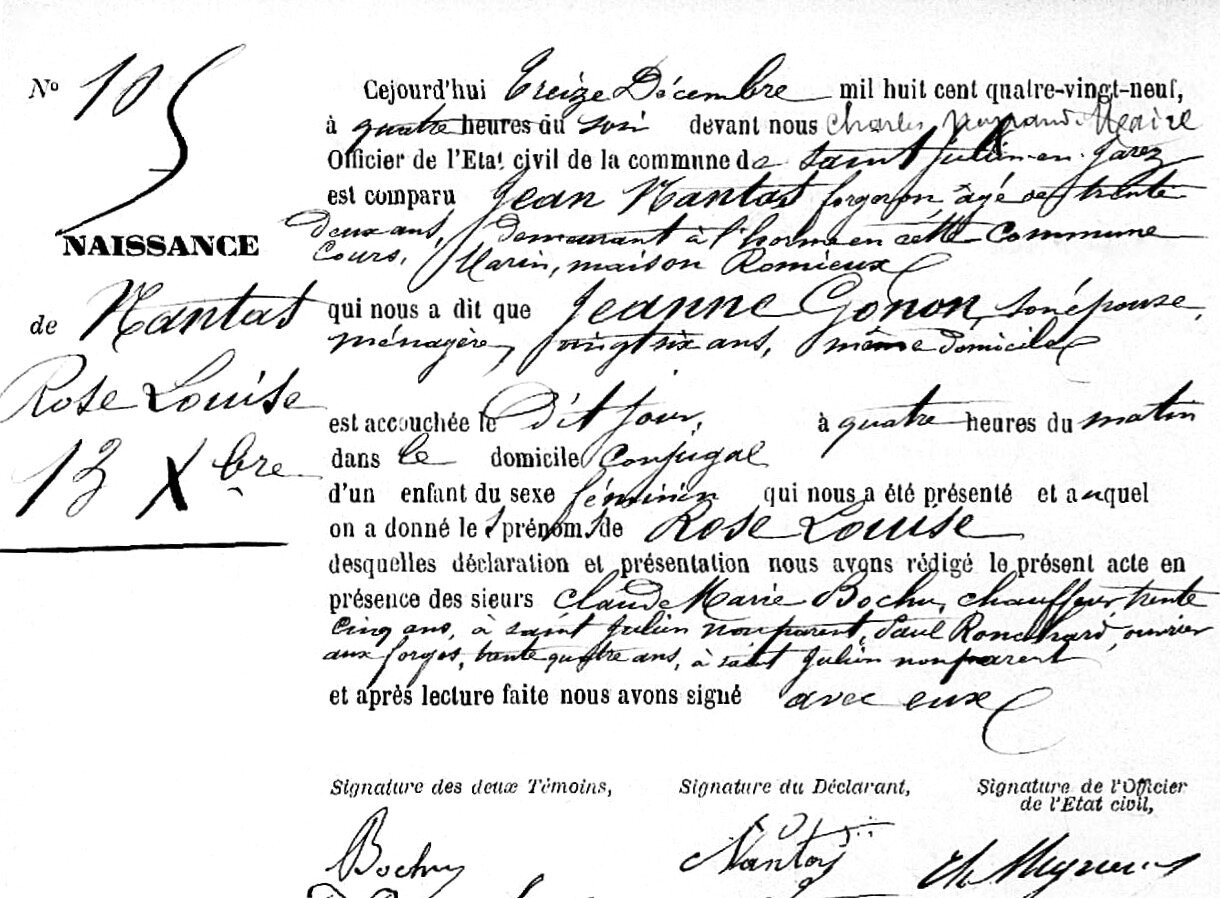 N° 105
Cejourd'hui Treize Décembre mil huit cent quatre-vingt-neuf,
à quatre heures du soir devant nous Charles Maire
Officier de l'Etat civil de la commune de Saint Julien-en-Jarez
est comparu Jean Nantas forgeron, âgé de trente
deux ans, demeurant à l'horme en cette Commune
Cours, Marin, maison Romieux
NAISSANCE
de Nantas
Rose Louise
13 Xbre
qui nous a dit que Jeanne Gonon, son épouse,
ménagère, vingt six ans, même domicile
est accouchée le dit jour, à quatre heures du matin
dans le domicile Conjugal
d'un enfant du sexe féminin qui nous a été présenté et auquel
on a donné les prénoms de Rose Louise
desquelles déclaration et présentation nous avons rédigé le présent acte en
présence des sieurs Claude Marie Bochu, chauffeur, trente
cinq ans, à saint Julien non parent, Paul Ronchard, ouvrier
aux forges, trente quatre ans, à saint Julien non parent
et après lecture faite nous avons signé avec eux
Signature des deux Témoins, Signature du Déclarant, Signature de l'Officier
de l'Etat civil,
Bochu Nantas